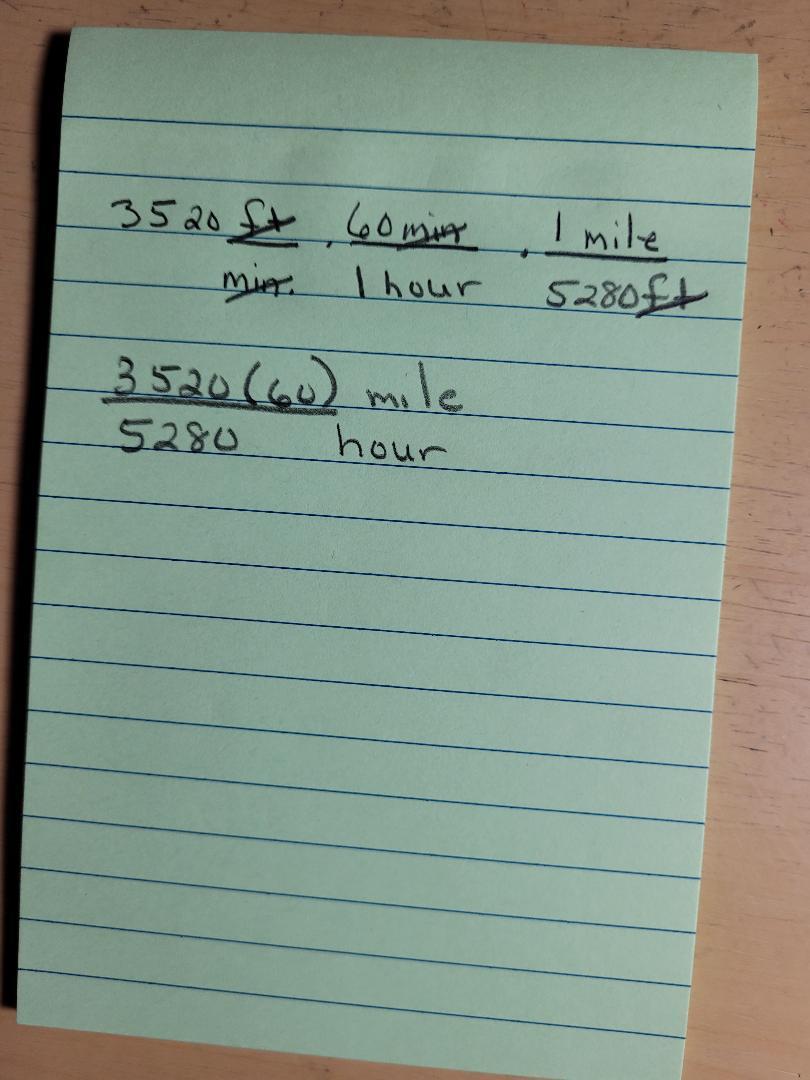 3520 ft/min. · 60 min/1 hour · 1 mile/5280 ft
3520(60)/5280 mile/hour